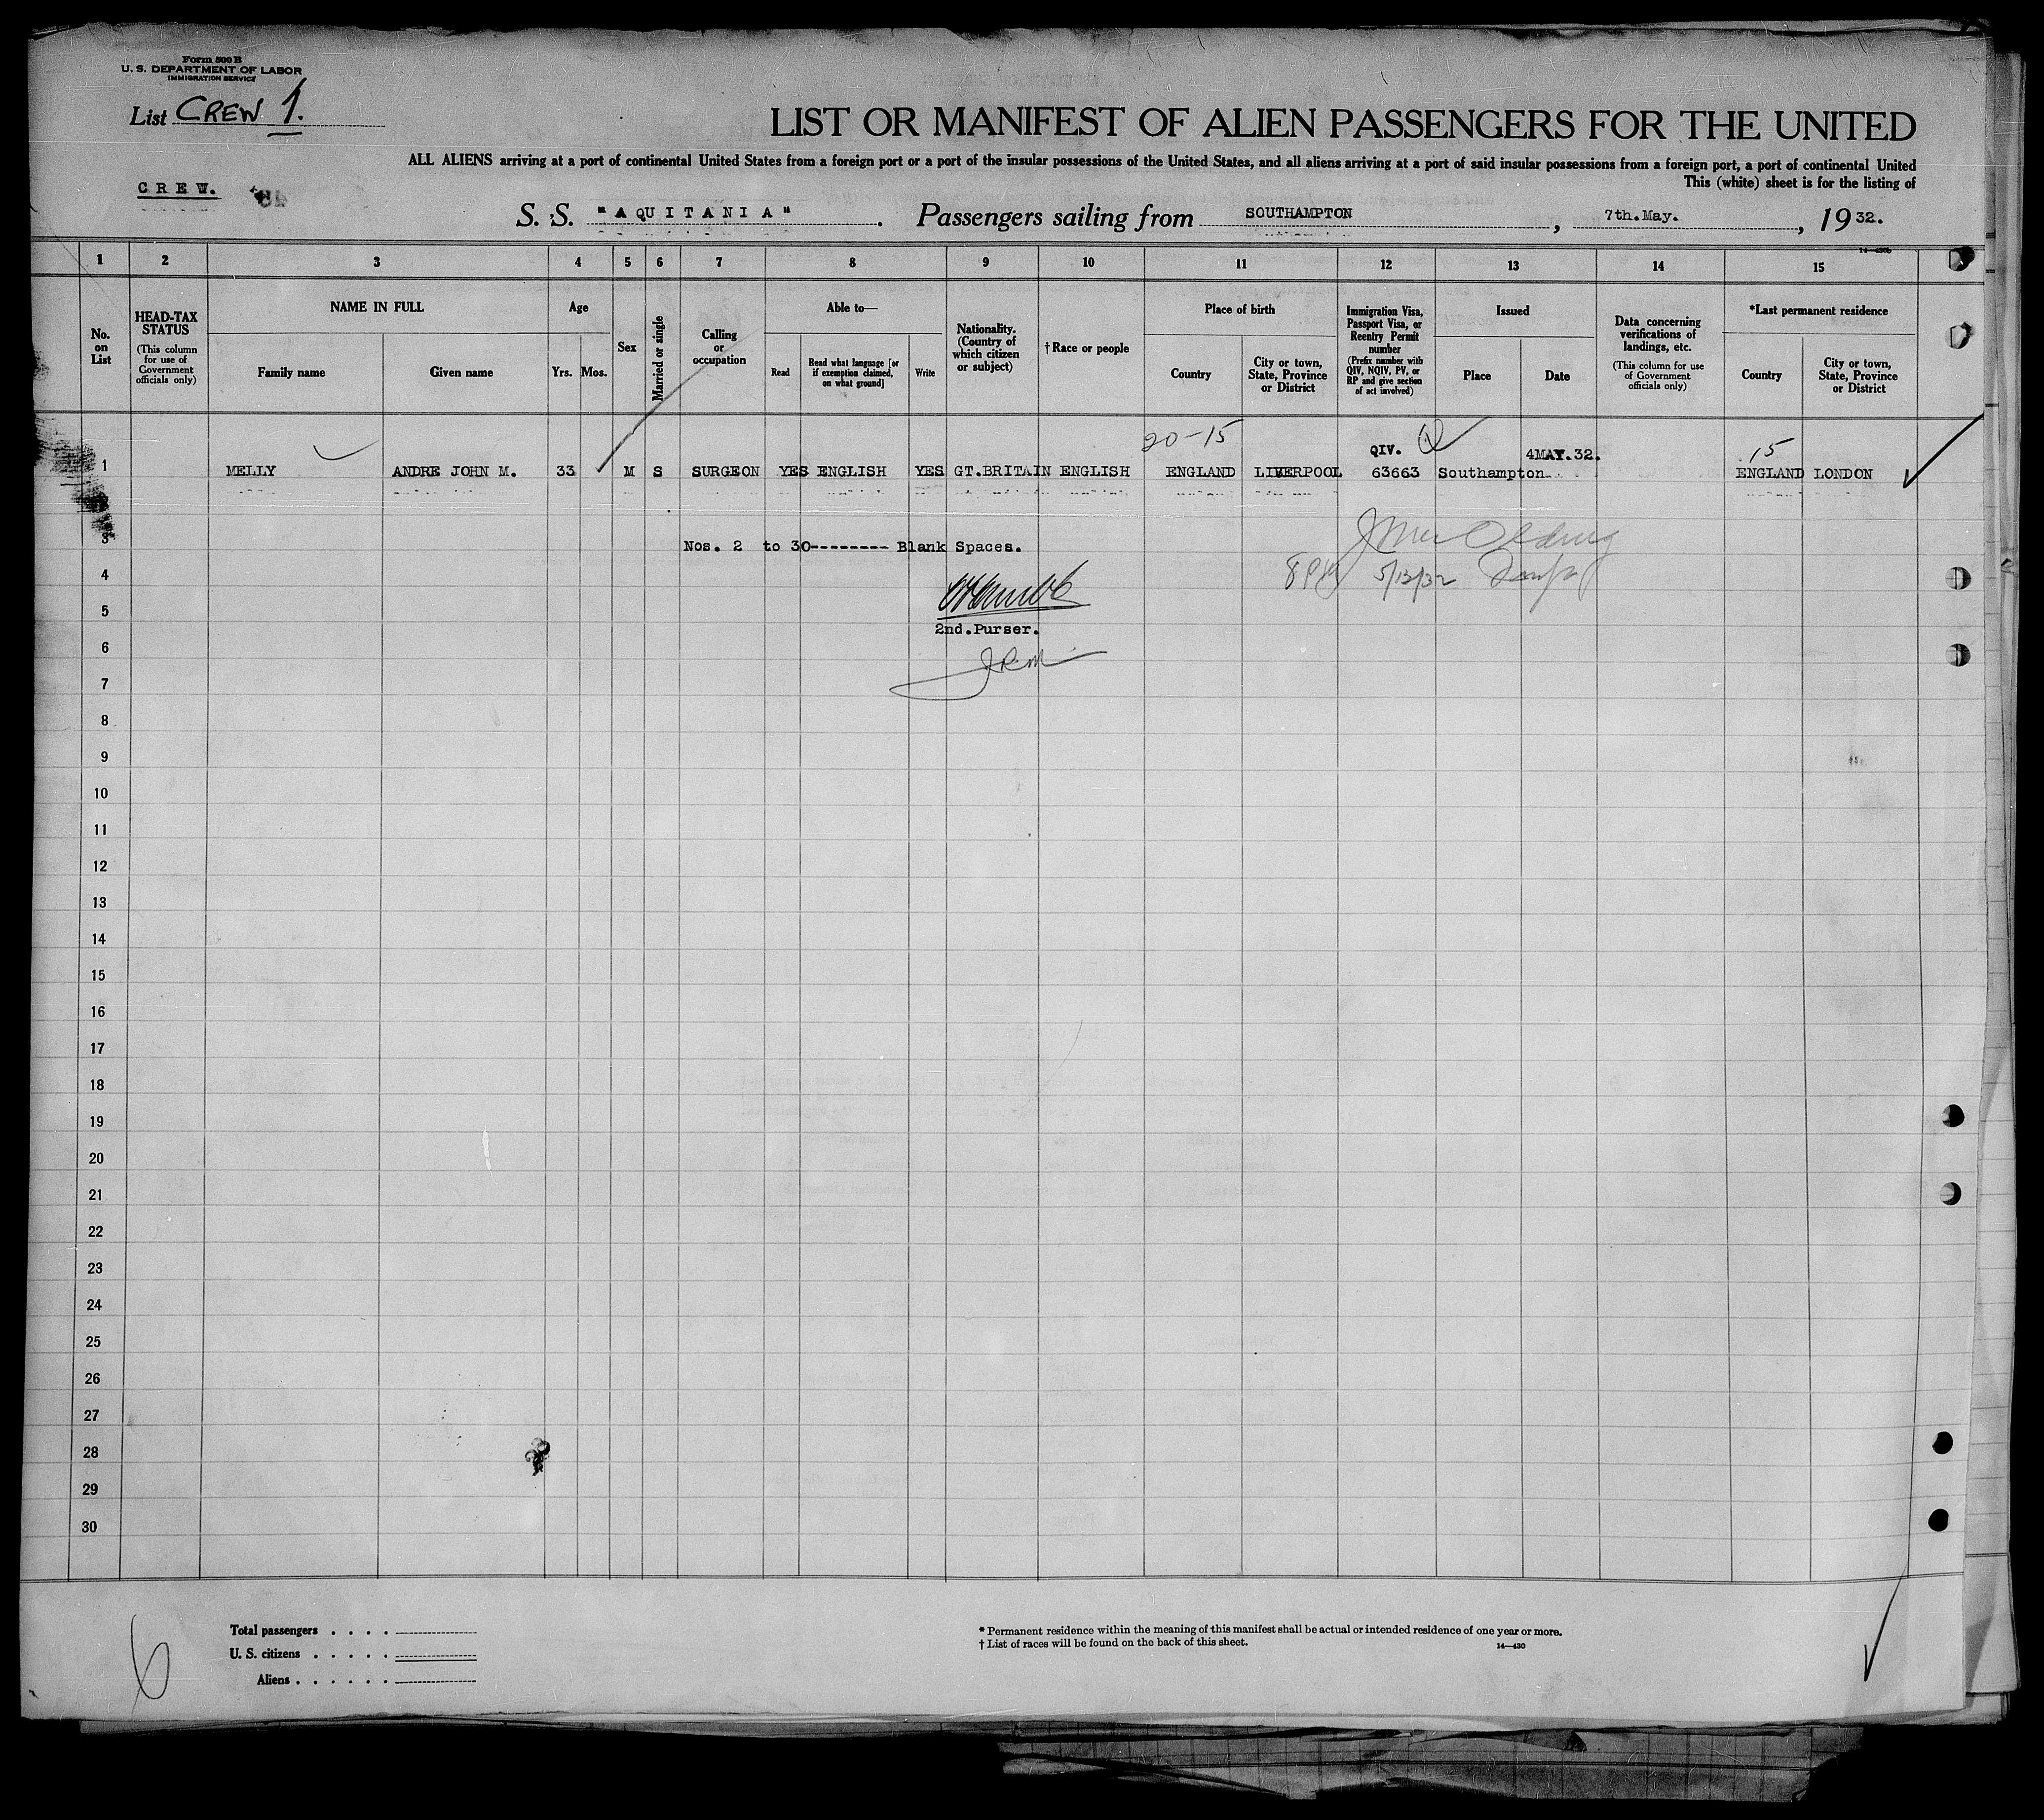 Form 500 B
U. S. DEPARTMENT OF LABOR
IMMIGRATION SERVICE
List CREW 1.
LIST OR MANIFEST OF ALIEN PASSENGERS FOR THE UNITED
ALL ALIENS arriving at a port of continental United States from a foreign port or a port of the insular possessions of the United States, and all aliens arriving at a port of said insular possessions from a foreign port, a port of continental United
This (white) sheet is for the listing of
CREW.
S. S. "AQUITANIA". Passengers sailing from SOUTHAMPTON, 7th. May., 1932.
14—430b
1 2 3 4 5 6 7 8 9 10 11 12 13 14 15
No. on List
HEAD-TAX STATUS
(This column for use of Government officials only)
NAME IN FULL
Family name
Given name
Age
Yrs. Mos.
Sex
Married or single
Calling or occupation
Able to—
Read
Read what language [or if exemption claimed, on what ground]
Write
Nationality. (Country of which citizen or subject)
†Race or people
Place of birth
Country
City or town, State, Province or District
Immigration Visa, Passport Visa, or Reentry Permit number
(Prefix number with QIV, NQIV, PV, or RP and give section of act involved)
Issued
Place
Date
Data concerning verifications of landings, etc.
(This column for use of Government officials only)
*Last permanent residence
Country
City or town, State, Province or District
20-15 QIV. 4MAY.32. 15
1 MELLY ANDRE JOHN M. 33 M S SURGEON YES ENGLISH YES GT.BRITAIN ENGLISH ENGLAND LIVERPOOL 63663 Southampton ENGLAND LONDON
3
Nos. 2 to 30-------- Blank Spaces.
4
8 PM 5/13/32
5
2nd. Purser.
6
7
8
9
10
11
12
13
14
15
16
17
18
19
20
21
22
23
24
25
26
27
28
29
30
6
Total passengers . . . .
U. S. citizens . . . . .
Aliens . . . . . .
* Permanent residence within the meaning of this manifest shall be actual or intended residence of one year or more.
† List of races will be found on the back of this sheet.
14—430